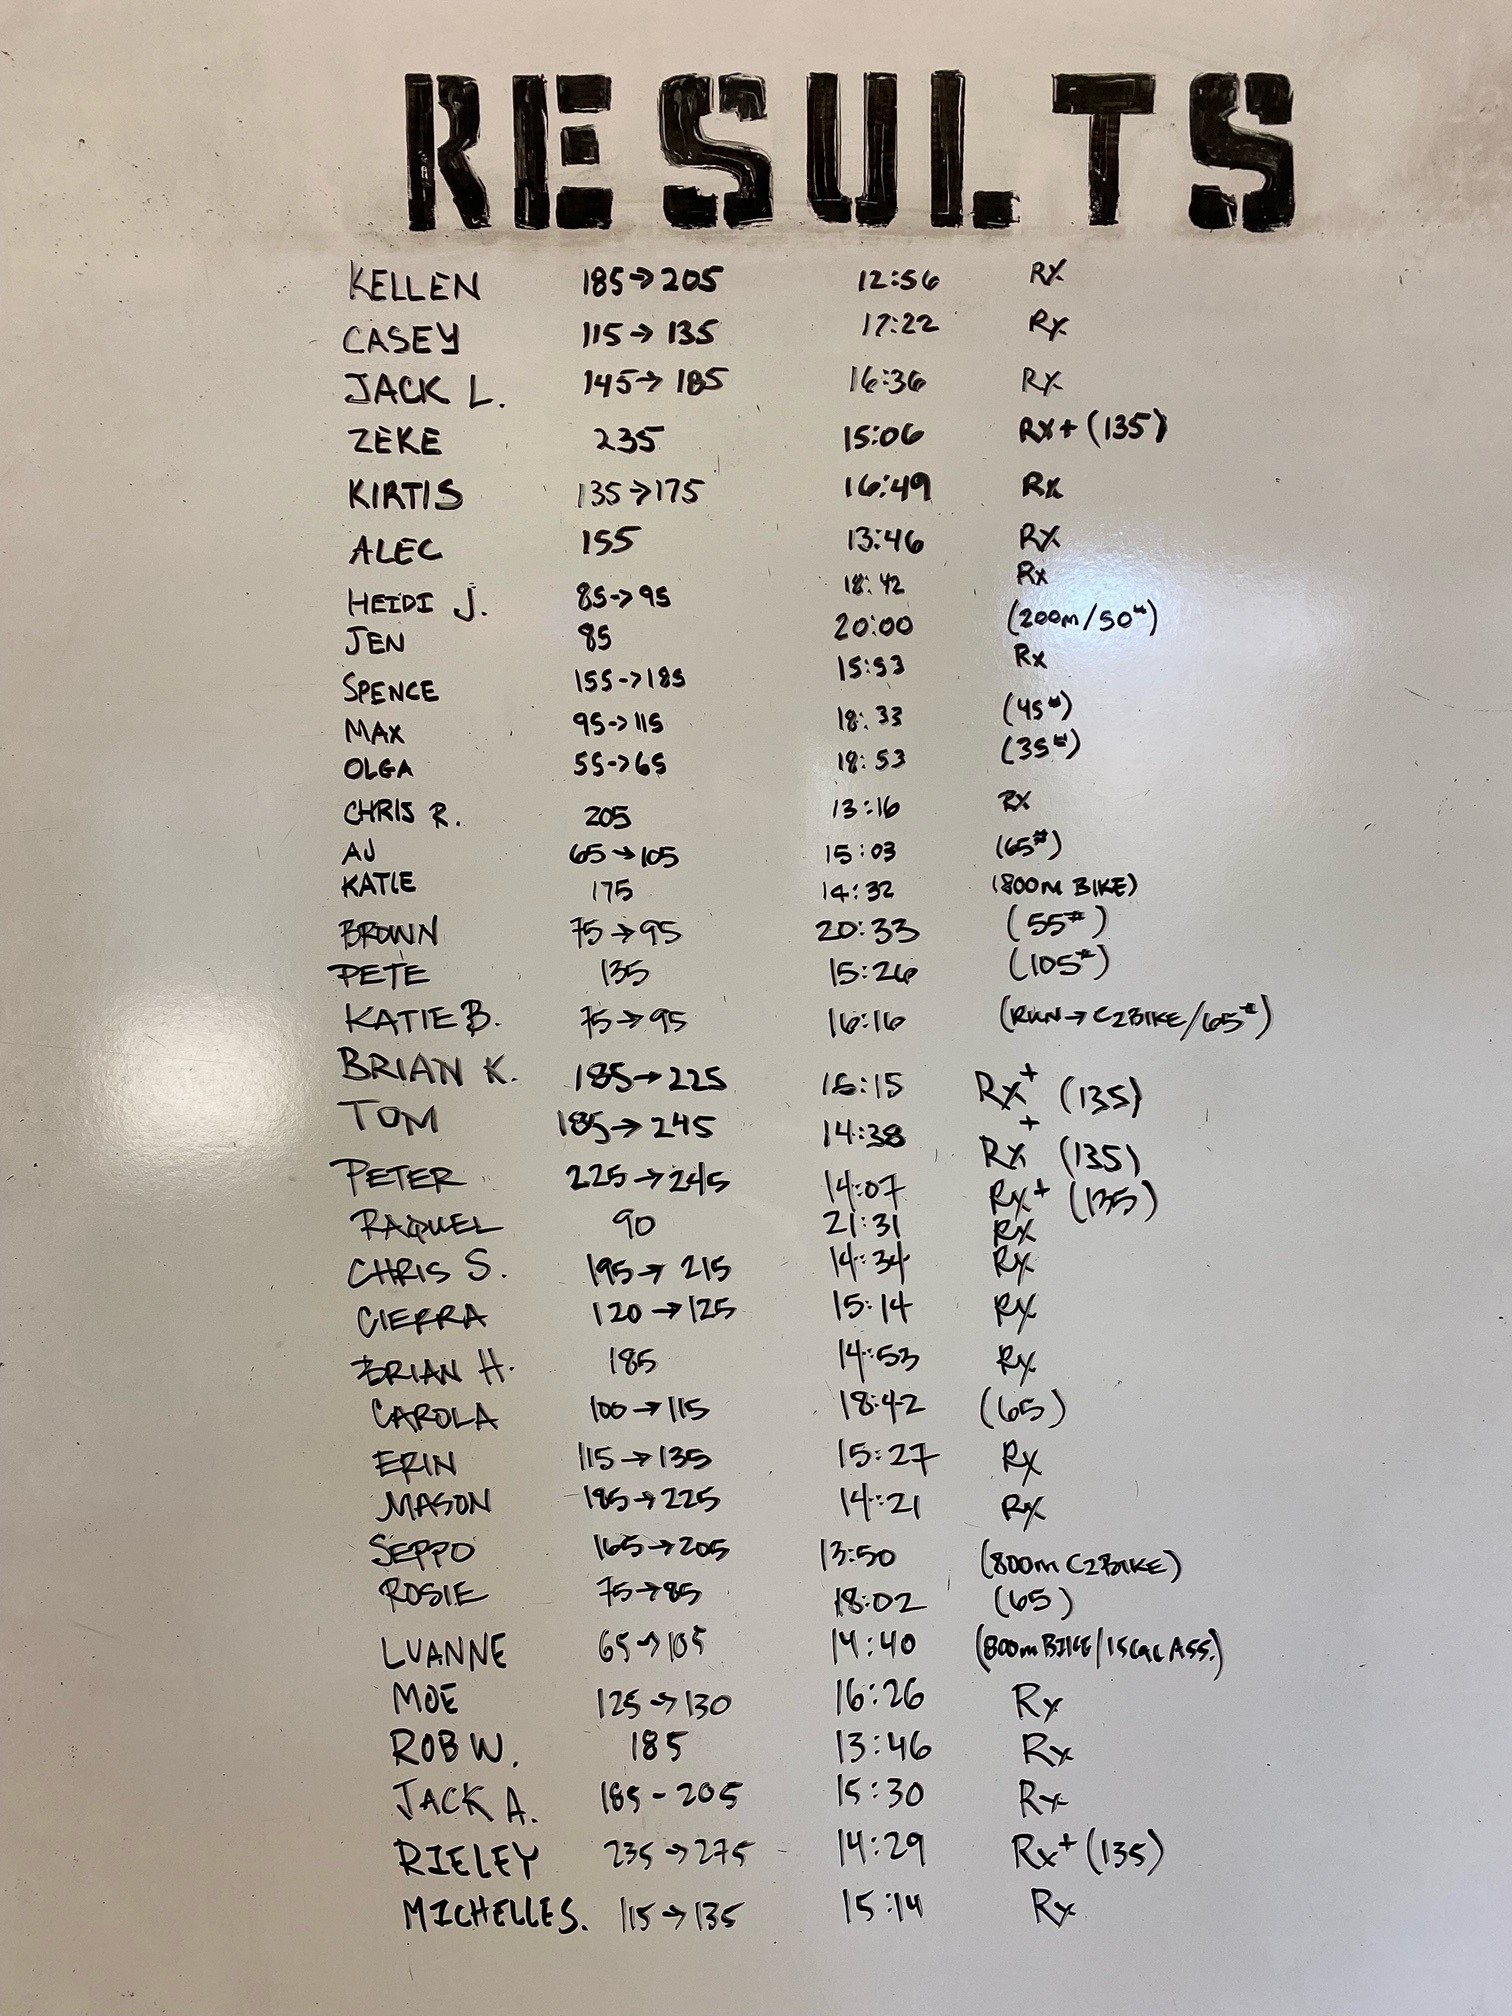 RESULTS
KELLEN 185→205 12:56 RX
CASEY 115→135 17:22 Rx
JACK L. 145→185 16:36 Rx
ZEKE 235 15:06 Rx+ (135)
KIRTIS 135→175 16:49 Rx
ALEC 155 13:46 RX
HEIDI J. 85→95 18:42 Rx
JEN 85 20:00 (200m/50#)
SPENCE 155→185 15:53 Rx
MAX 95→115 18:33 (45#)
OLGA 55→65 18:53 (35#)
CHRIS R. 205 13:16 RX
AJ 65→105 15:03 (65#)
KATIE 175 14:32 (800m BIKE)
BROWN 75→95 20:33 (55#)
PETE 135 15:26 (105#)
KATIE B. 75→95 16:16 (RUN→C2BIKE/65#)
BRIAN K. 185→225 16:15 Rx+ (135)
TOM 185→245 14:38 Rx+ (135)
PETER 225→245 14:07 Rx+ (135)
RAQUEL 90 21:31 RX
CHRIS S. 195→215 14:34 Rx
CIERRA 120→125 15:14 Rx
BRIAN H. 185 14:53 Rx
CAROLA 100→115 18:42 (65)
ERIN 115→135 15:27 Rx
MASON 185→225 14:21 Rx
SEPPO 165→205 13:50 (800m C2BIKE)
ROSIE 75→85 18:02 (65)
LUANNE 65→105 14:40 (800m BIKE/15CAL ASS.)
MOE 125→130 16:26 Rx
ROB W. 185 13:46 Rx
JACK A. 185-205 15:30 Rx
RIELEY 235→275 14:29 Rx+ (135)
MICHELLE S. 115→135 15:14 Rx